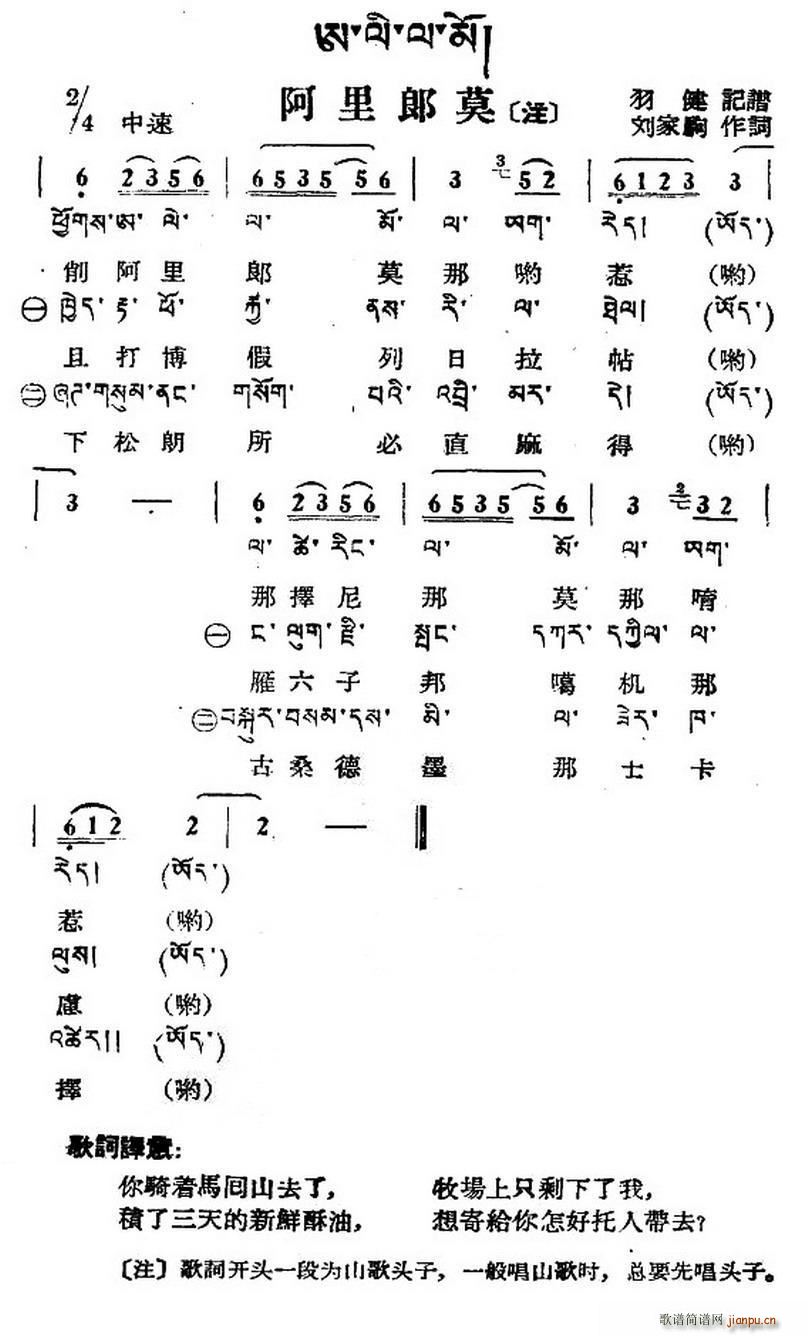 ཨ་ལི་ལ་མོ།
2/4 中速 阿里郎莫〔注〕 羽健記譜
刘家駒作詞
| 6 2356 | 653556 | 3 52 | 6123 3 |
ཕྱོགས་ཨ་ལེ་ ལ་ མོ་ ལ་ ཨག་ རེད། (ཨོད་)
削阿里郎莫那喲惹(喲)
㊀ ཁྱེད་རྟ་ཕོ་ རྐྱ་ ནས་ རི་ ལ་ ཐེལ། (ཨོད་)
且打博假列日拉帖(喲)
㊁ ཞག་གསུམ་ནང་ གསོག་ པའི་ འབྲི་ མར་ དེ། (ཨོད་)
下松朗所必直麻得(喲)
| 3 — | 6 2356 | 653556 | 3 32 |
ལ་ ཚེ་ རིང་ ལ་ མོ་ ལ་ ཨག་
那擇尼那莫那唷
㊀ ང་ ལུག་ རྫི་ སྤང་ དཀར་ དཀྱིལ་ ལ་
雁六子邦噶机那
㊁ བསྐུར་བསམ་དས་ མི་ ལ་ ཟེར་ ཁ་
古桑德墨那士卡
| 612 2 | 2 — ‖
རེད། (ཨོད་)
惹(喲)
ལུས། (ཨོད་)
慮(喲)
འཚེར།། (ཨོད་)
擇(喲)
歌詞譯意:
你騎着馬回山去了, 牧場上只剩下了我,
積了三天的新鮮酥油, 想寄給你怎好托人帶去?
〔注〕歌詞开头一段为山歌头子, 一般唱山歌时, 总要先唱头子。
歌谱简谱网 jianpu.cn